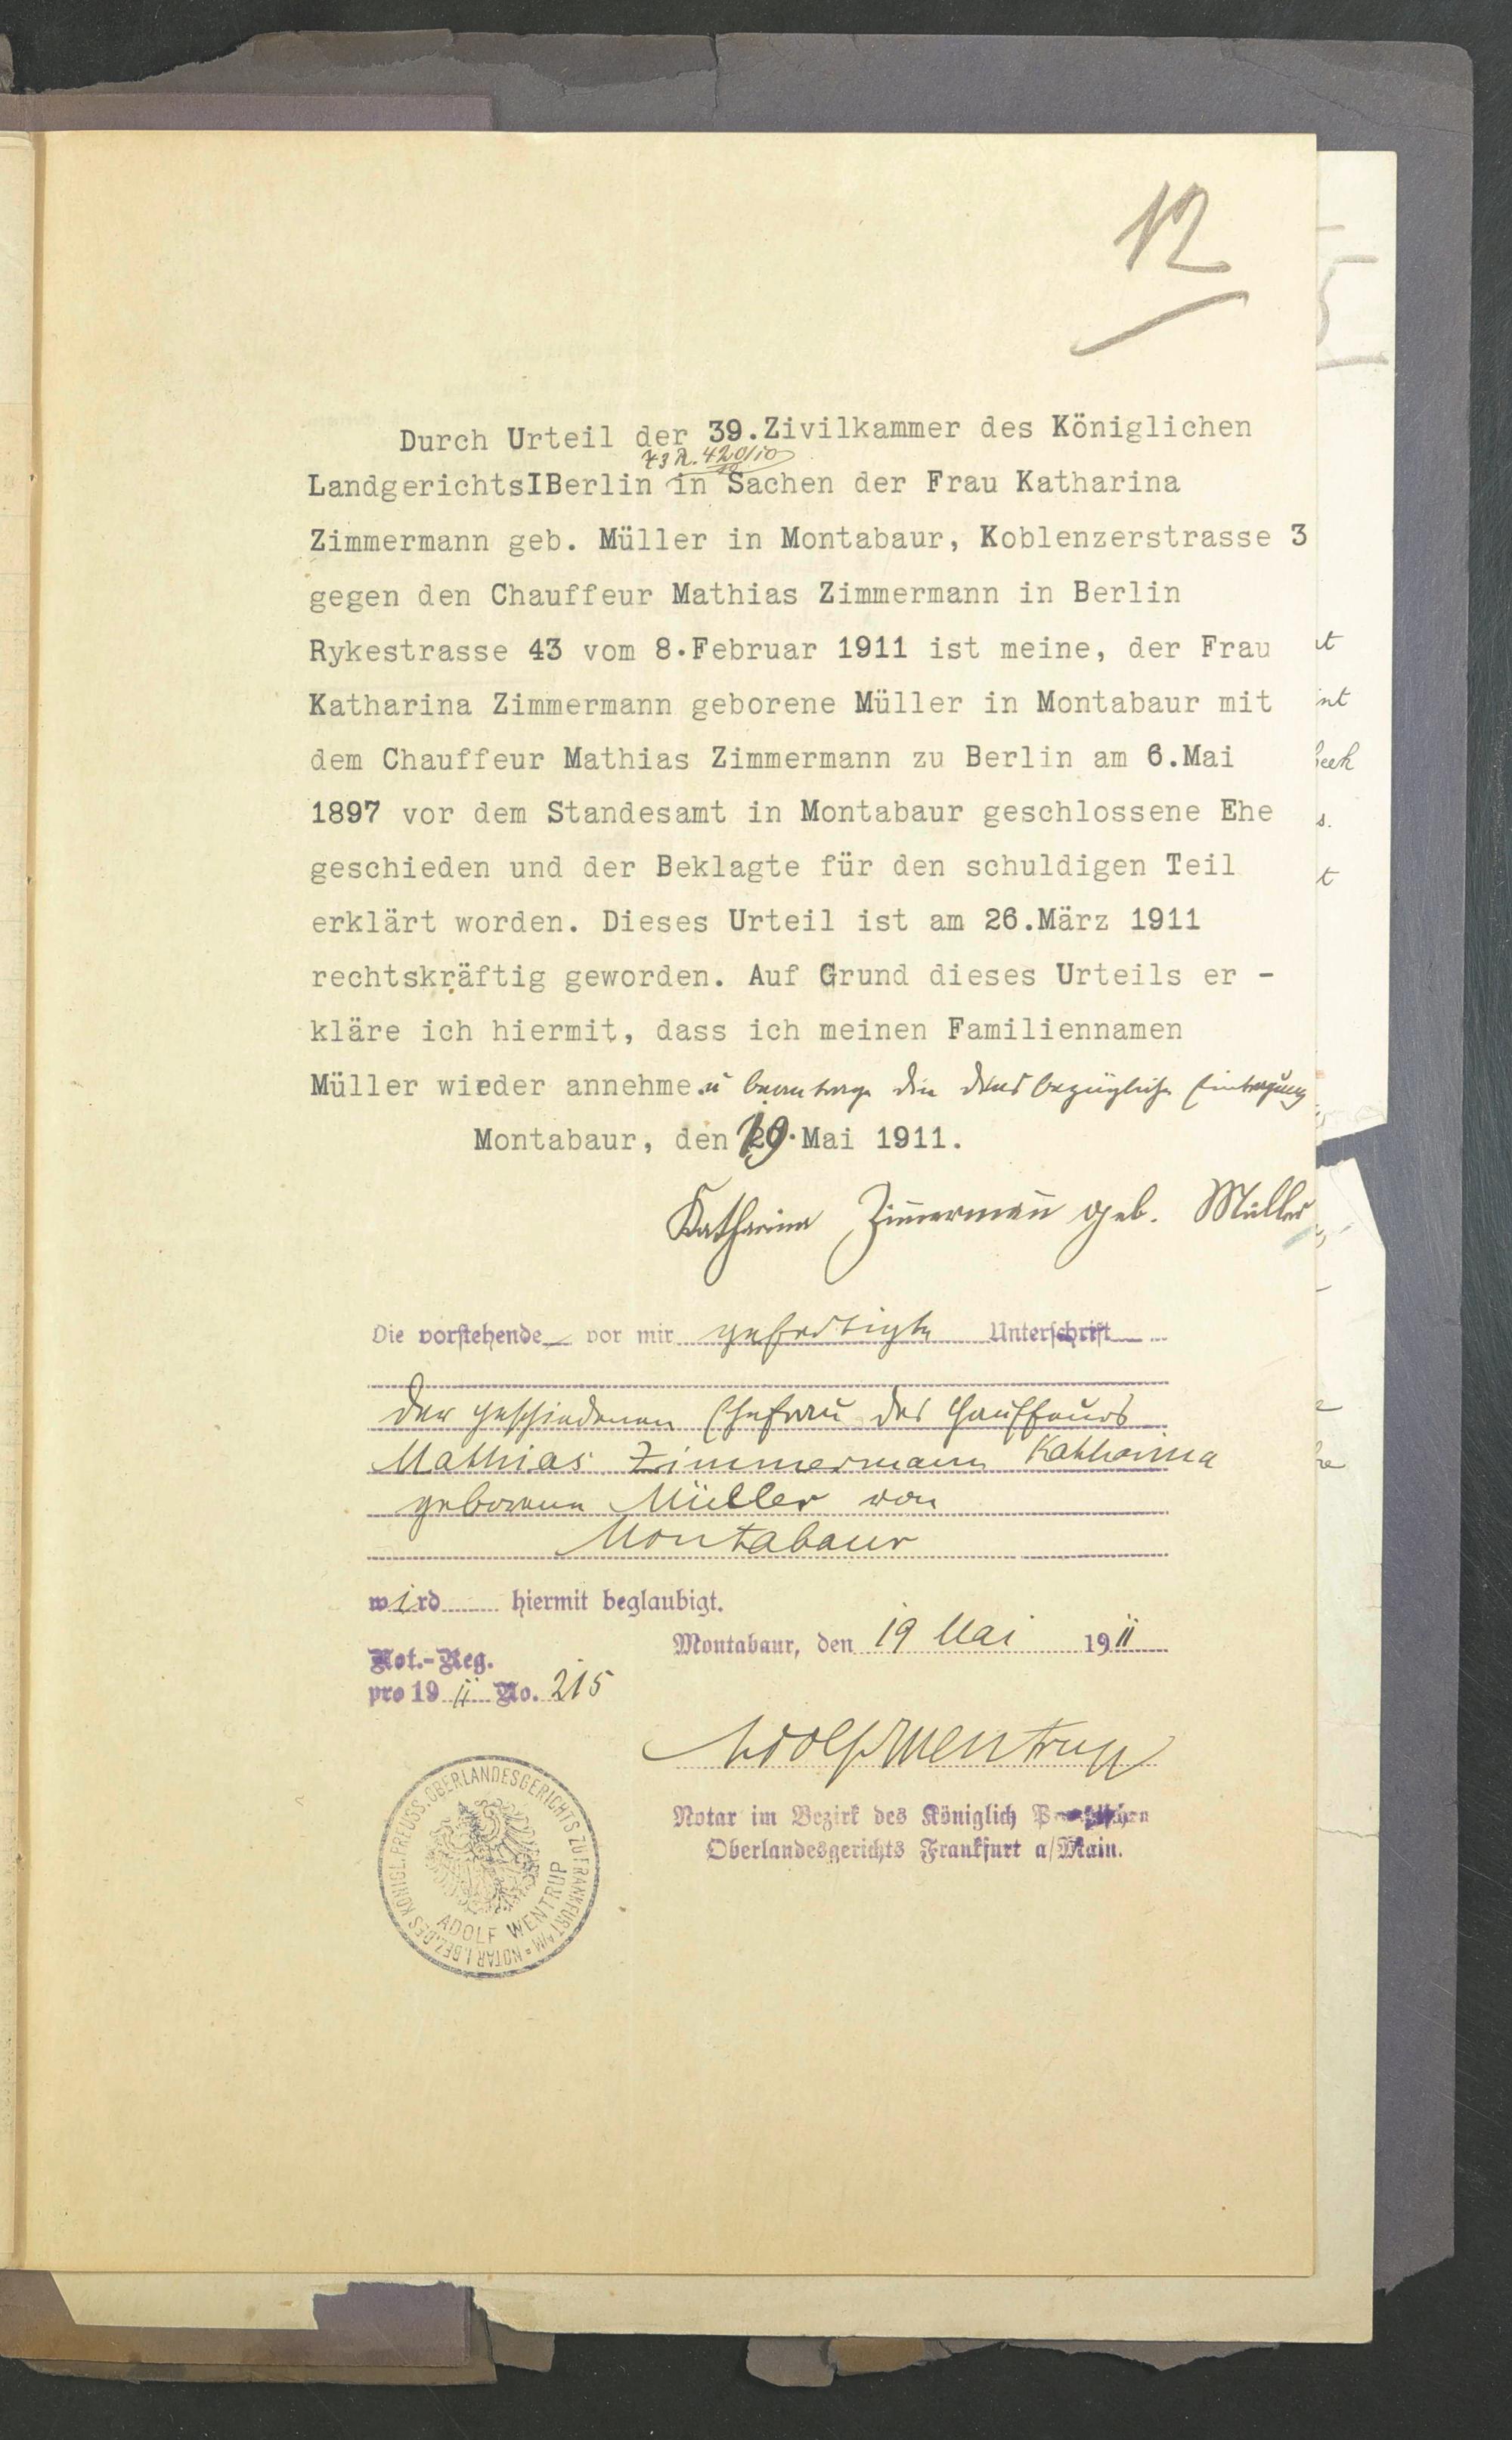 12
Durch Urteil der 39.Zivilkammer des Königlichen
43 R. 420/10
LandgerichtsIBerlin in Sachen der Frau Katharina
Zimmermann geb. Müller in Montabaur, Koblenzerstrasse 3
gegen den Chauffeur Mathias Zimmermann in Berlin
Rykestrasse 43 vom 8.Februar 1911 ist meine, der Frau
Katharina Zimmermann geborene Müller in Montabaur mit
dem Chauffeur Mathias Zimmermann zu Berlin am 6.Mai
1897 vor dem Standesamt in Montabaur geschlossene Ehe
geschieden und der Beklagte für den schuldigen Teil
erklärt worden. Dieses Urteil ist am 26.März 1911
rechtskräftig geworden. Auf Grund dieses Urteils er -
kläre ich hiermit, dass ich meinen Familiennamen
Müller wieder annehme. u beantrage die diesbezügliche Eintragung
Montabaur, den 19. Mai 1911.
Katharina Zimmermann geb. Müller
Die vorstehende vor mir gefertigte Unterschrift
der geschiedenen Ehefrau des Chauffeurs
Mathias Zimmermann Katharina
geborenen Müller von
Montabaur
wird hiermit beglaubigt.
Montabaur, den 19 Mai 1911
Not.-Reg.
pro 1911 No. 215
Adolf Wentrup
Notar im Bezirk des Königlich Preußischen
Oberlandesgerichts Frankfurt a/Main.
NOTAR I. BEZ. DES KÖNIGL. PREUSS. OBERLANDESGERICHTS ZU FRANKFURT A/M
ADOLF WENTRUP